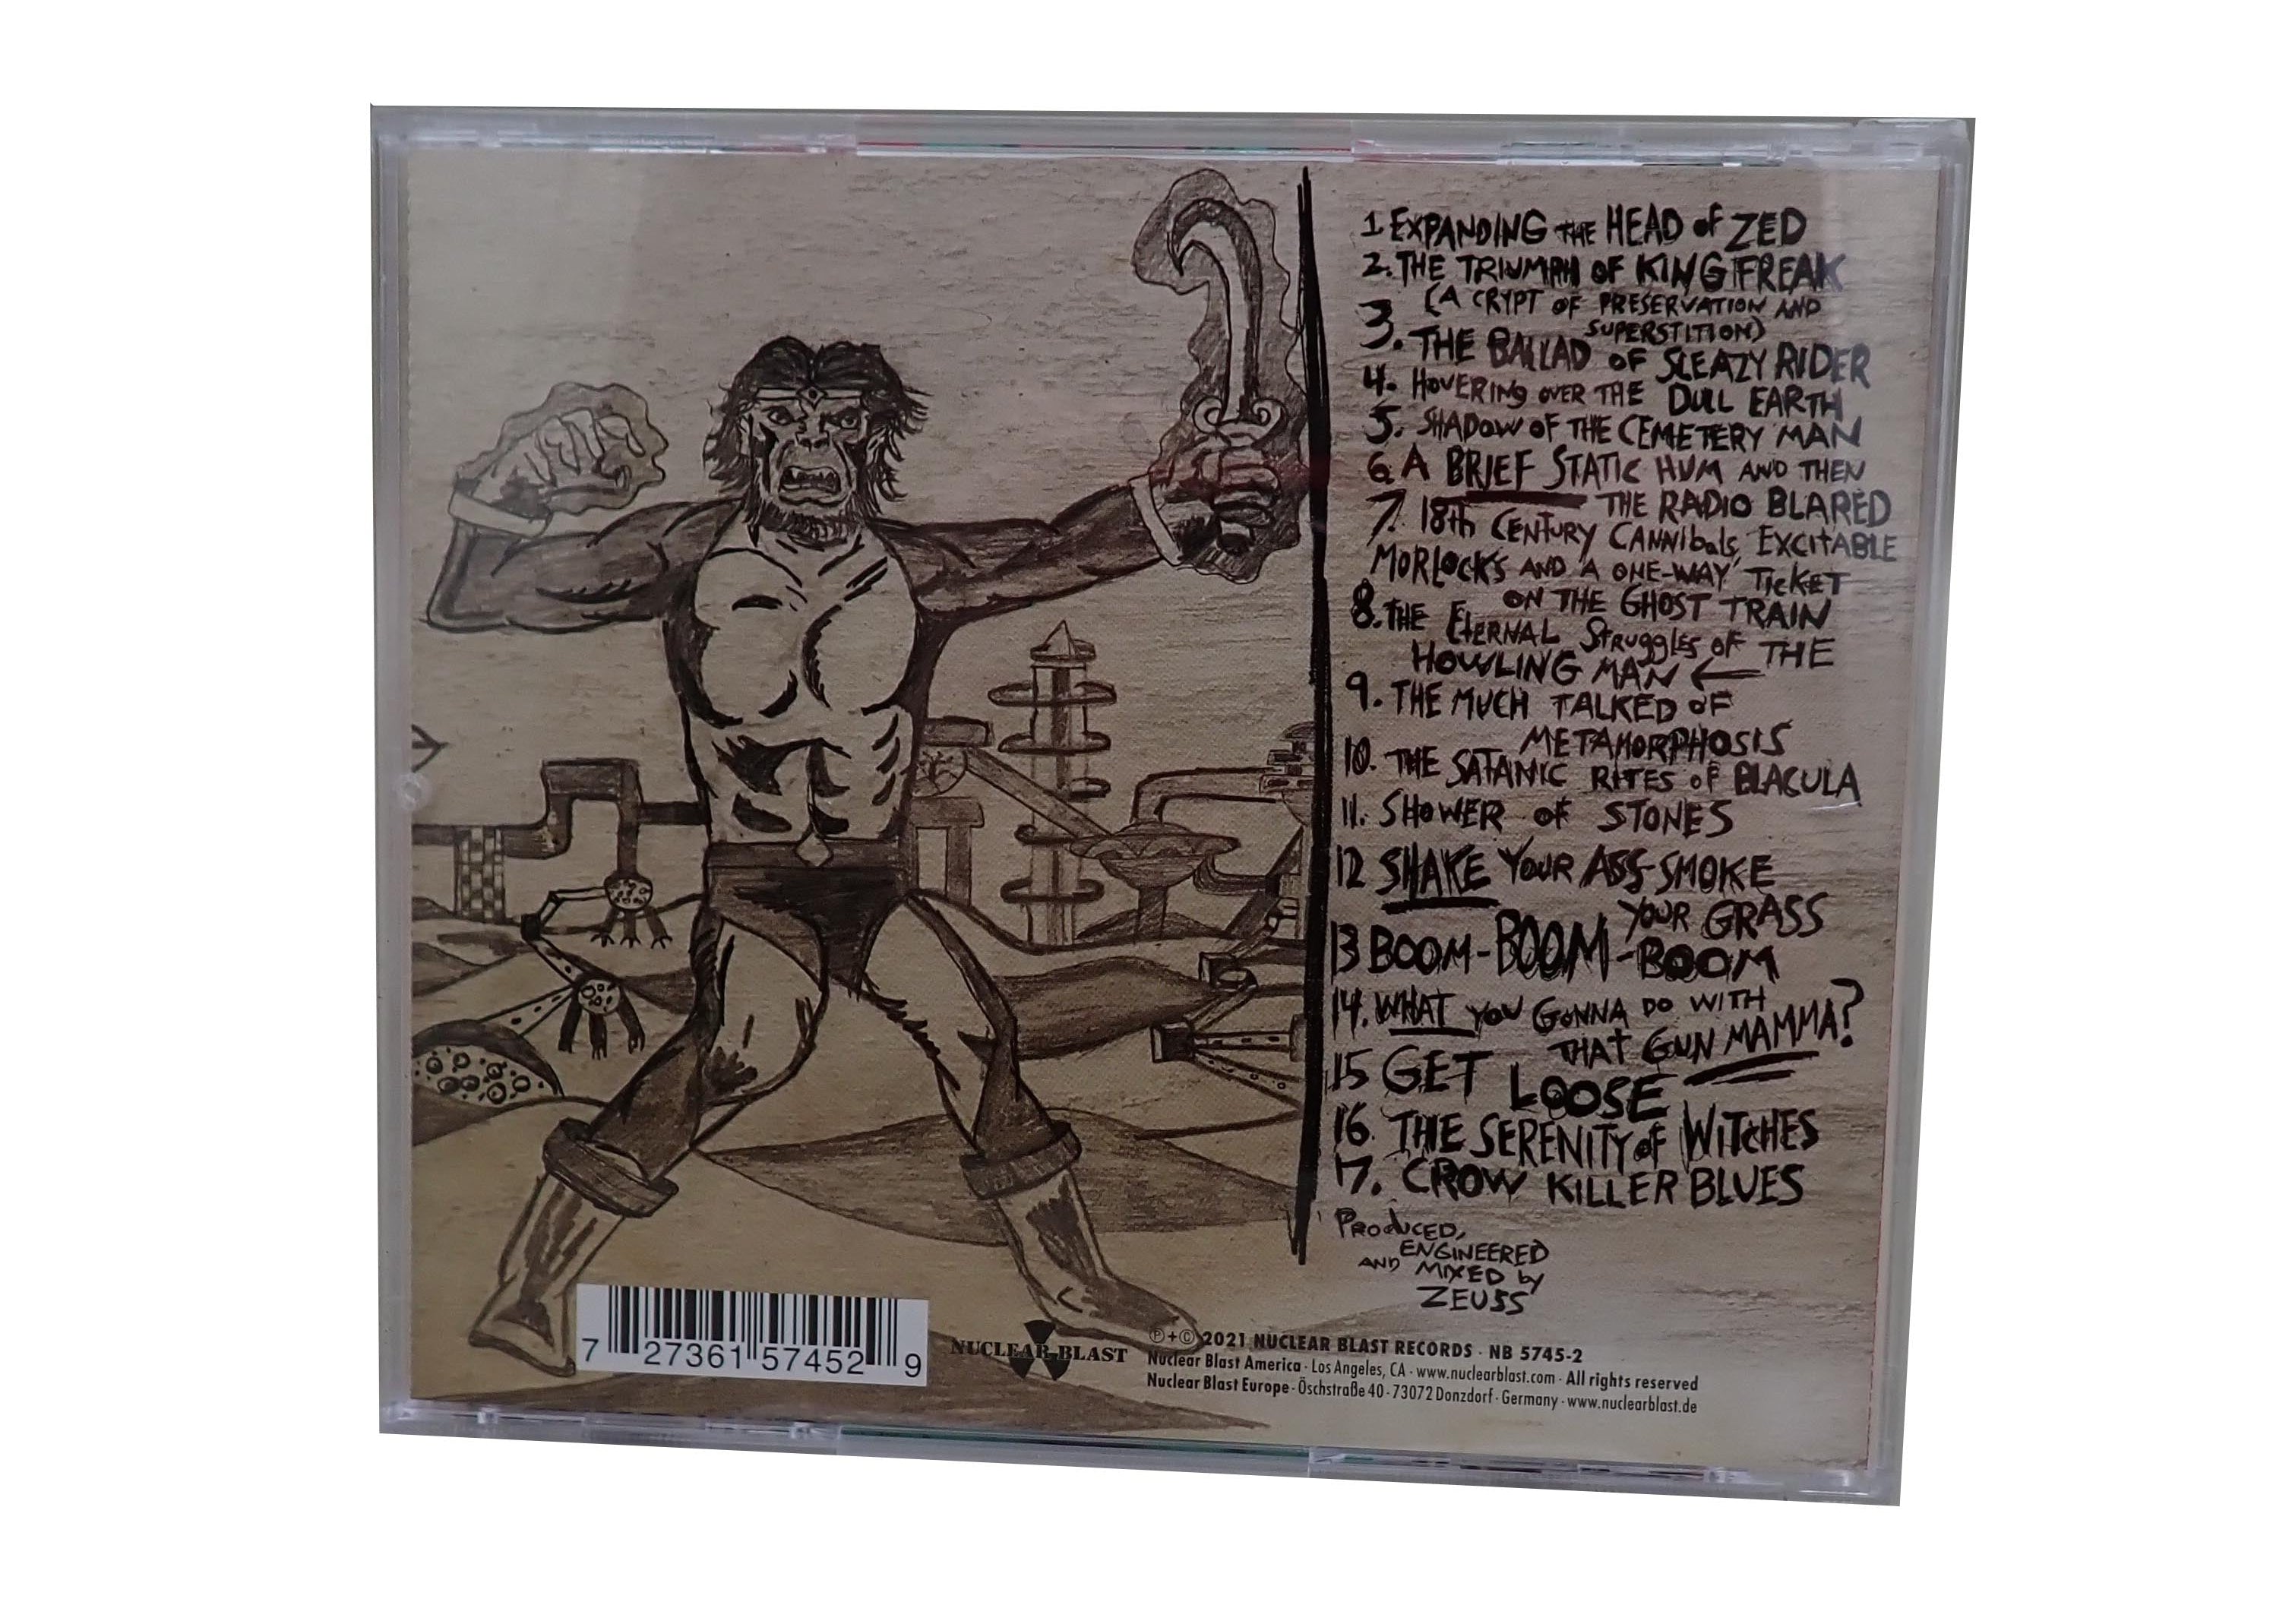 1. EXPANDING THE HEAD OF ZED
2. THE TRIUMPH OF KING FREAK
(A CRYPT OF PRESERVATION AND
SUPERSTITION)
3. THE BALLAD OF SLEAZY RIDER
4. HOVERING OVER THE DULL EARTH
5. SHADOW OF THE CEMETERY MAN
6. A BRIEF STATIC HUM AND THEN
THE RADIO BLARED
7. 18th CENTURY CANNibals, EXCITABLE
MORLOCKS AND A ONE-WAY TICKET
ON THE GHOST TRAIN
8. THE ETERNAL STRUGGLES OF THE
HOWLING MAN ←
9. THE MUCH TALKED OF
METAMORPHOSIS
10. THE SATANIC RITES OF BLACULA
11. SHOWER OF STONES
12 SHAKE YOUR ASS-SMOKE
YOUR GRASS
13 BOOM-BOOM-BOOM
14. WHAT YOU GONNA DO WITH
THAT GUN MAMMA?
15 GET LOOSE
16. THE SERENITY OF WITCHES
17. CROW KILLER BLUES
PRODUCED,
ENGINEERED
AND MIXED by
ZEUSS
7 27361 57452 9
NUCLEAR BLAST
℗+© 2021 NUCLEAR BLAST RECORDS · NB 5745-2
Nuclear Blast America · Los Angeles, CA · www.nuclearblast.com · All rights reserved
Nuclear Blast Europe · Öschstraße 40 · 73072 Donzdorf · Germany · www.nuclearblast.de